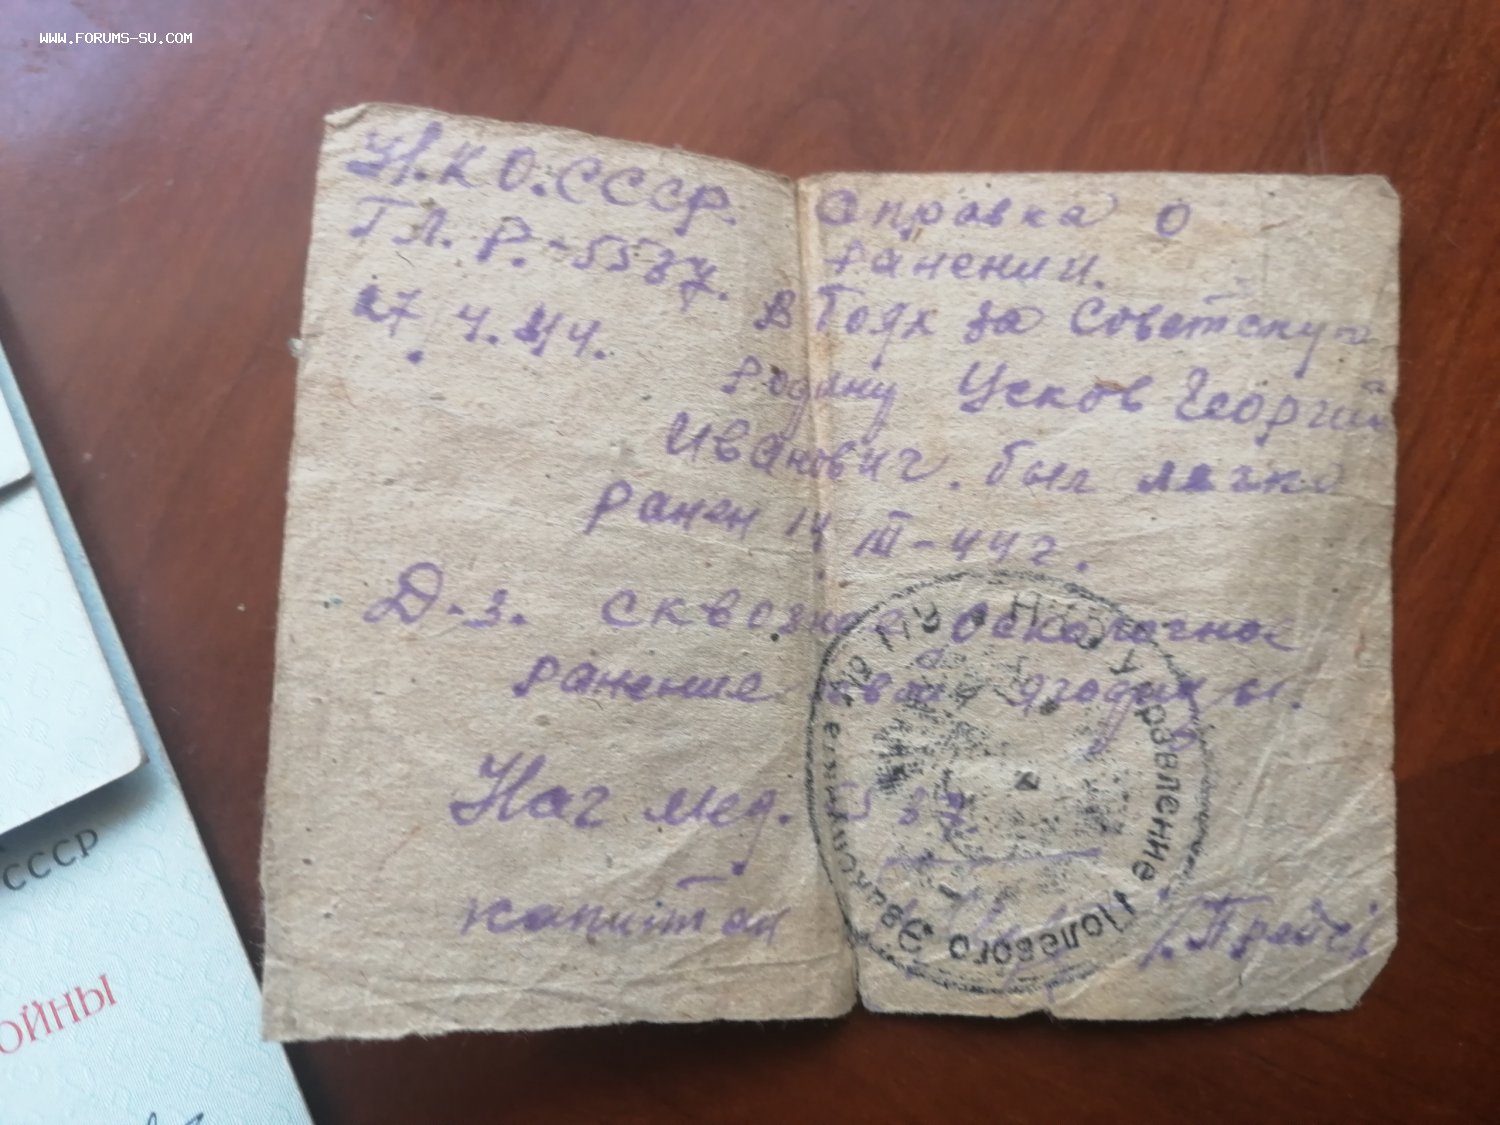 WWW.FORUMS-SU.COM
Н.К О. СССР.
ГЛ. Р. - 5537.
27/4.44.
Справка о
ранении.
В боях за Советскую
родину Усков Георгий
Иванович. был легко
ранен 14 III - 44 г.
Д-з. сквозное осколочное
ранение левой ягодицы.
Нач мед. 5537
капитан
НКО Управление Полевого Эвакоспиталя
СССР
ОЙНЫ